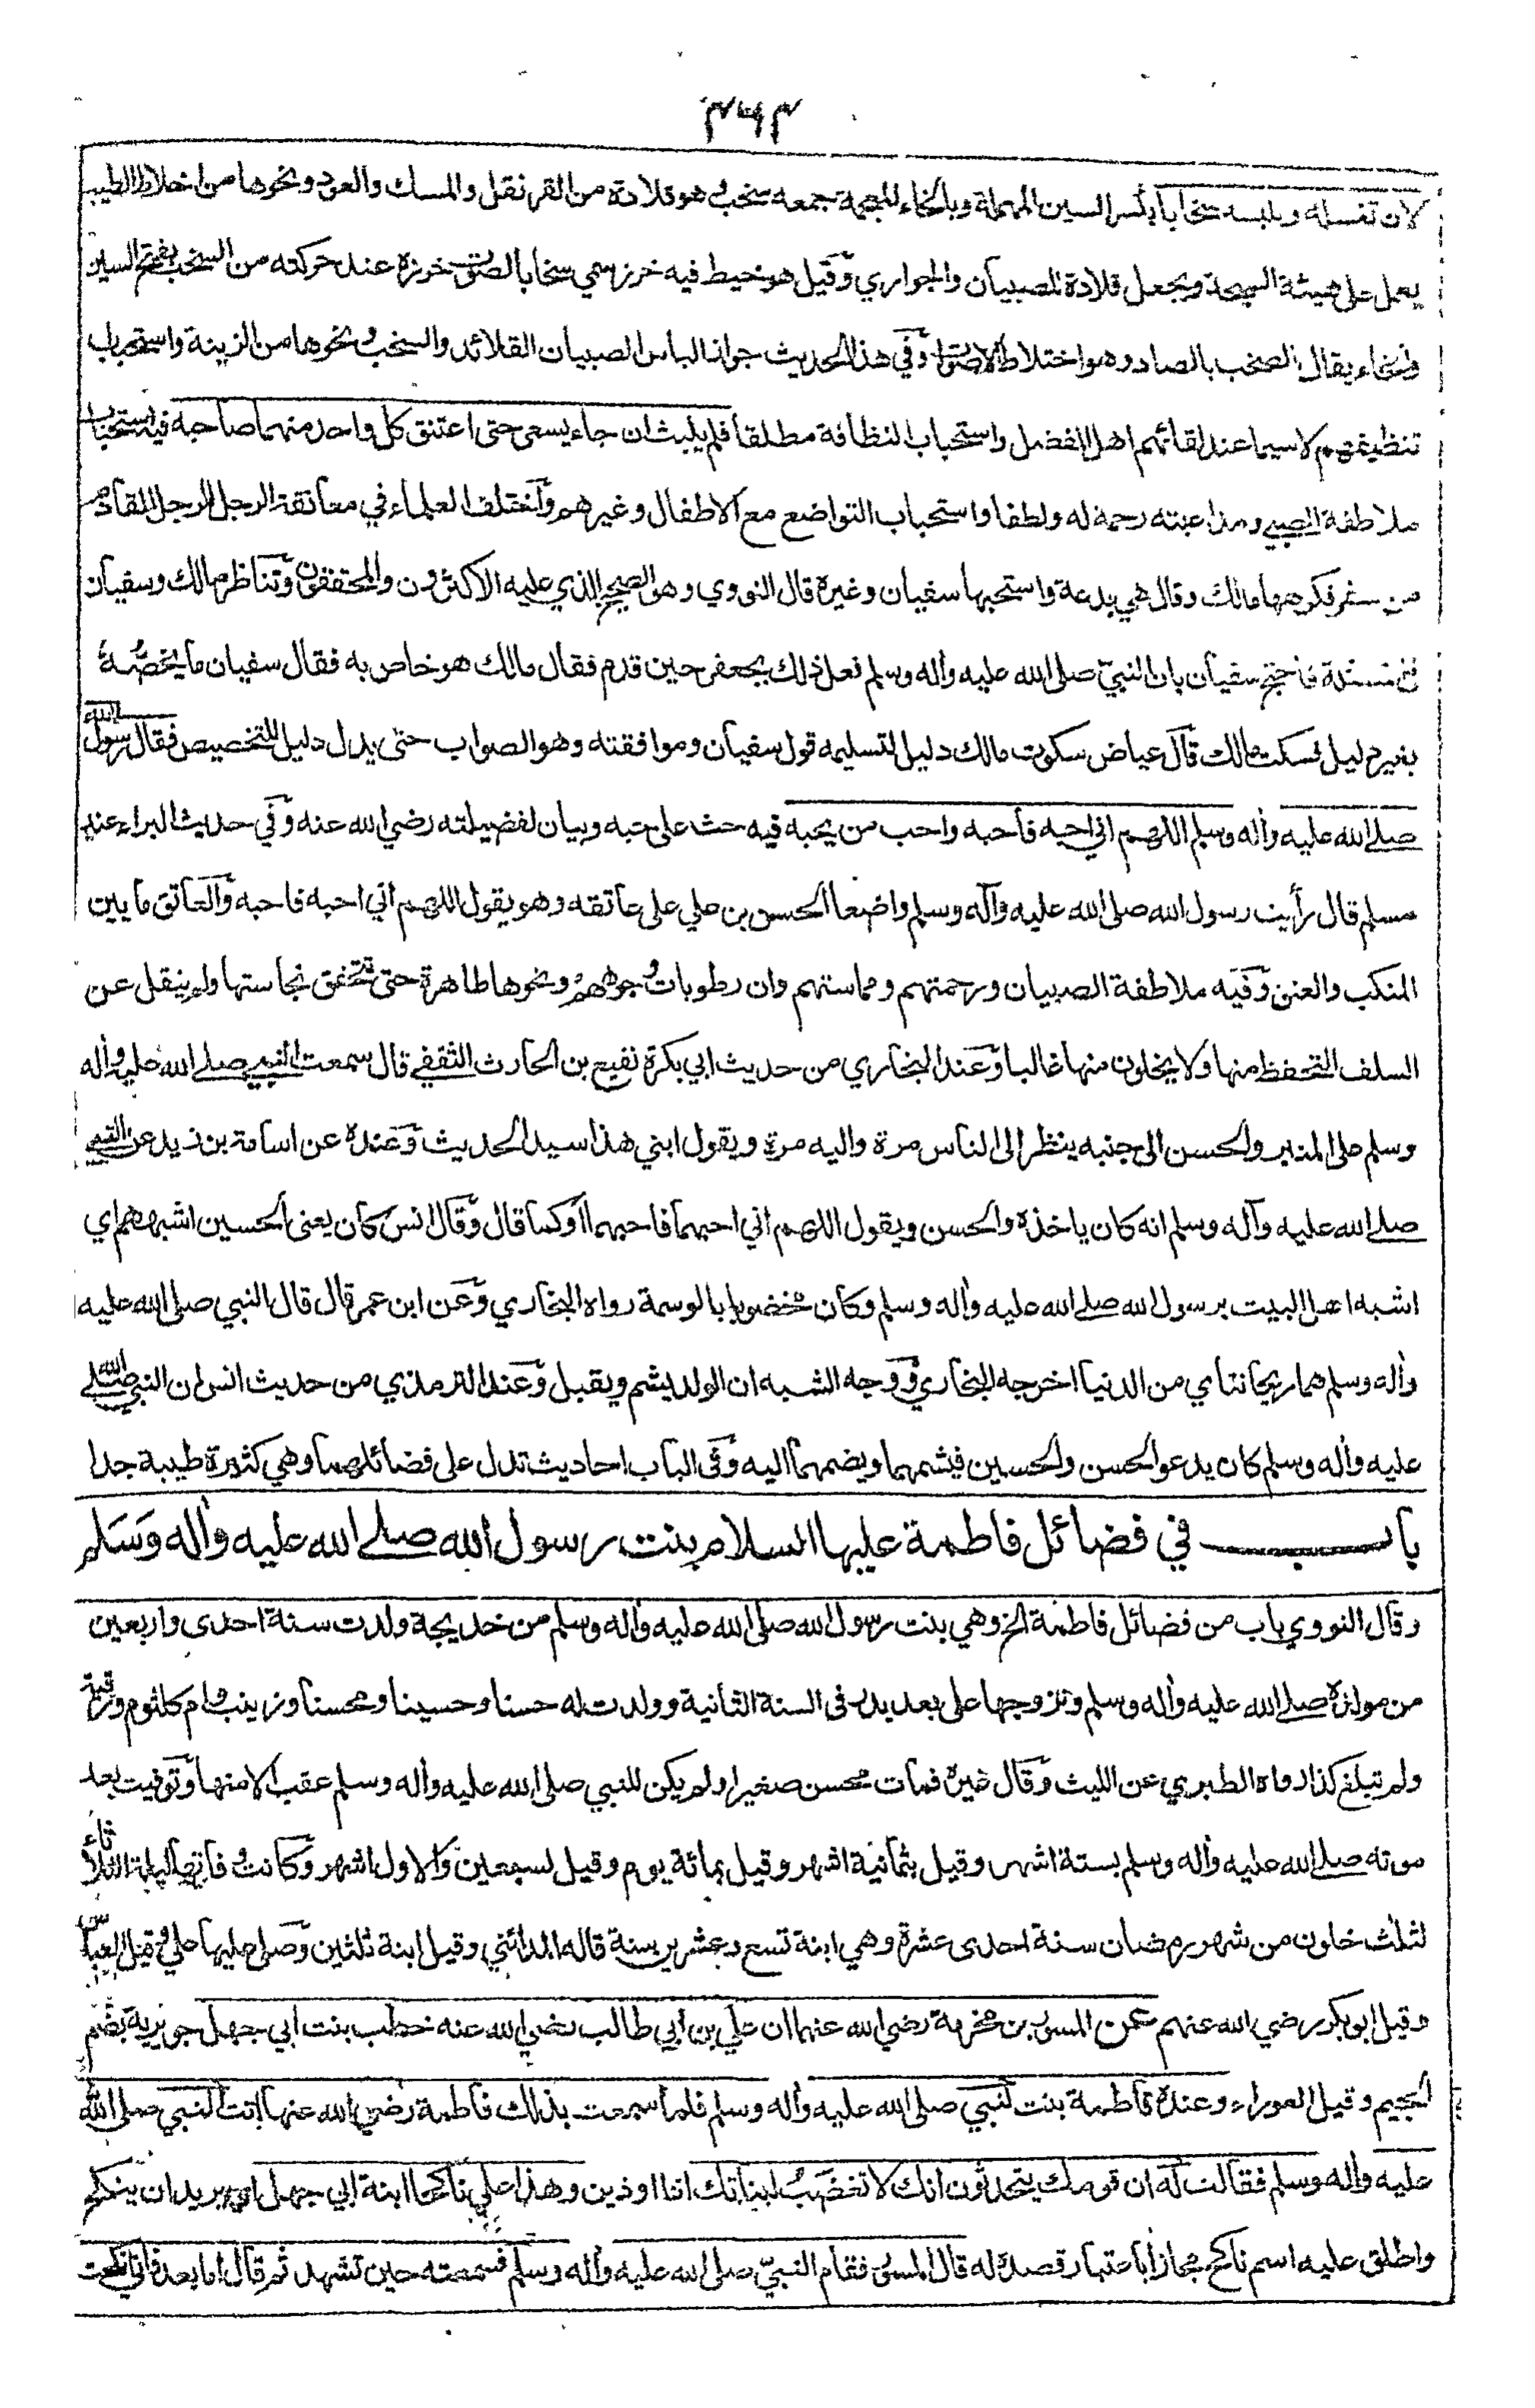 ٣٦٣
لان تغسله وتلبسه سخابا بكسر السين المهملة وبالخاء المعجمة جمعه سخب وهو قلادة من القرنفل والمسك والعود ونحوها من اخلاط الطيب
يعمل على هيئة السبحة ويجعل قلادة للصبيان والجواري وقيل هو خيط فيه خرز سمي سخابا لصوت خرزه عند حركته من السخب بفتح السين
والخاء يقال الصخب بالصاد وهو اختلاط الاصوات وفي هذا الحديث جواز الباس الصبيان القلائد والسخب ونحوها من الزينة واستحباب
تنظيفهم لاسيما عند لقائهم اهل الفضل واستحباب النظافة مطلقا فلم يلبث ان جاء يسعى حتى اعتنق كل واحد منهما صاحبه فيه استحباب
ملاطفة الصبي ومداعبته رحمة له ولطفا واستحباب التواضع مع الاطفال وغيرهم واختلف العلماء في معانقة الرجل للرجل القادم
من سفر فكرهها مالك وقال هي بدعة واستحبها سفيان وغيره قال النووي وهو الصحيح الذي عليه الاكثرون والمحققون وتناظر مالك وسفيان
في مسئلة فاحتج سفيان بان النبيّ صلى الله عليه وأله وسلم فعل ذلك بجعفر حين قدم فقال مالك هو خاص به فقال سفيان ما يخصّهُ
بغير دليل فسكت مالك قال عياض سكوت مالك دليل لتسليمه قول سفيان وموافقته وهو الصواب حتى يدل دليل للتخصيص فقال رسول الله
صلى الله عليه وأله وسلم اللهم اني احبه فأحبه واحب من يحبه فيه حث على حبه وبيان لفضيلته رضي الله عنه وفي حديث البراء عند
مسلم قال رأيت رسول الله صلى الله عليه وآله وسلم واضعا الحسن بن علي على عاتقه وهو يقول اللهم اني احبه فاحبه والعاتق ما بين
المنكب والعنق وفيه ملاطفة الصبيان ورحمتهم ومماستهم وان رطوبات وجوههم ونحوها طاهرة حتى تتحقق نجاستها ولم ينقل عن
السلف التحفظ منها ولا يخلون منها غالبا وعند البخاري من حديث ابي بكرة نفيع بن الحارث الثقفي قال سمعت النبي صلى الله عليه وأله
وسلم على المنبر والحسن الى جنبه ينظر الى الناس مرة واليه مرة ويقول ابني هذا سيد الحديث وعنده عن اسامة بن زيد عن النبي
صلى الله عليه وآله وسلم انه كان ياخذه والحسن ويقول اللهم اني احبهما فاحبهما أو كما قال وقال انس كان يعنى الحسين اشبههم اي
اشبه اهل البيت برسول الله صلى الله عليه وأله وسلم وكان مخضوبا بالوسمة رواه البخاري وعن ابن عمر قال قال النبي صلى الله عليه
وأله وسلم هما ريحانتاي من الدنيا اخرجه البخاري ووجه الشبه ان الولد يشم ويقبل وعند الترمذي من حديث انس ان النبي صلى الله
عليه وأله وسلم كان يدعو الحسن والحسين فيشمهما ويضمهما اليه وفي الباب احاديث تدل على فضائلهما وهي كثيرة طيبة جدا
باب في فضائل فاطمة عليها السلام بنت رسول الله صلى الله عليه وأله وَسَلم
وقال النووي باب من فضائل فاطمة الخ وهي بنت رسول الله صلى الله عليه وأله وسلم من خديجة ولدت سنة احدى واربعين
من مولده صلى الله عليه وأله وسلم وتزوجها علي بعد بدر في السنة الثانية وولدت له حسنا وحسينا ومحسنا وزينب وام كلثوم ورقية
ولم تبلغ كذا رواه الطبري عن الليث وقال غيره فمات محسن صغيرا ولم يكن للنبي صلى الله عليه وأله وسلم عقب الا منها وتوفيت بعد
موته صلى الله عليه وأله وسلم بستة اشهر وقيل بثمانية اشهر وقيل بمائة يوم وقيل لسبعين والاول اشهر وكانت وفاتها ليلة الثلاثاء
لثلث خلون من شهر رمضان سنة احدى عشرة وهي ابنة تسع وعشرين سنة قاله المدائني وقيل ابنة ثلثين وصلى عليها علي وقيل العباس
وقيل ابو بكر رضي الله عنهم عن المسور بن مخرمة رضي الله عنهما ان علي بن ابي طالب رضي الله عنه خطب بنت ابي جهل جويرية بضم
الجيم وقيل العوراء وعنده فاطمة بنت النبي صلى الله عليه وأله وسلم فلما سمعت بذلك فاطمة رضي الله عنها اتت النبي صلى الله
عليه وأله وسلم فقالت له ان قومك يتحدثون انك لا تغضب لبناتك اذا اوذين وهذا علي ناكحا ابنة ابي جهل اي يريد ان ينكح
واطلق عليه اسم ناكح مجازا باعتبار قصده له قال المسور فقام النبيّ صلى الله عليه وأله وسلم فسمعته حين تشهد ثم قال اما بعد فاني انكحت